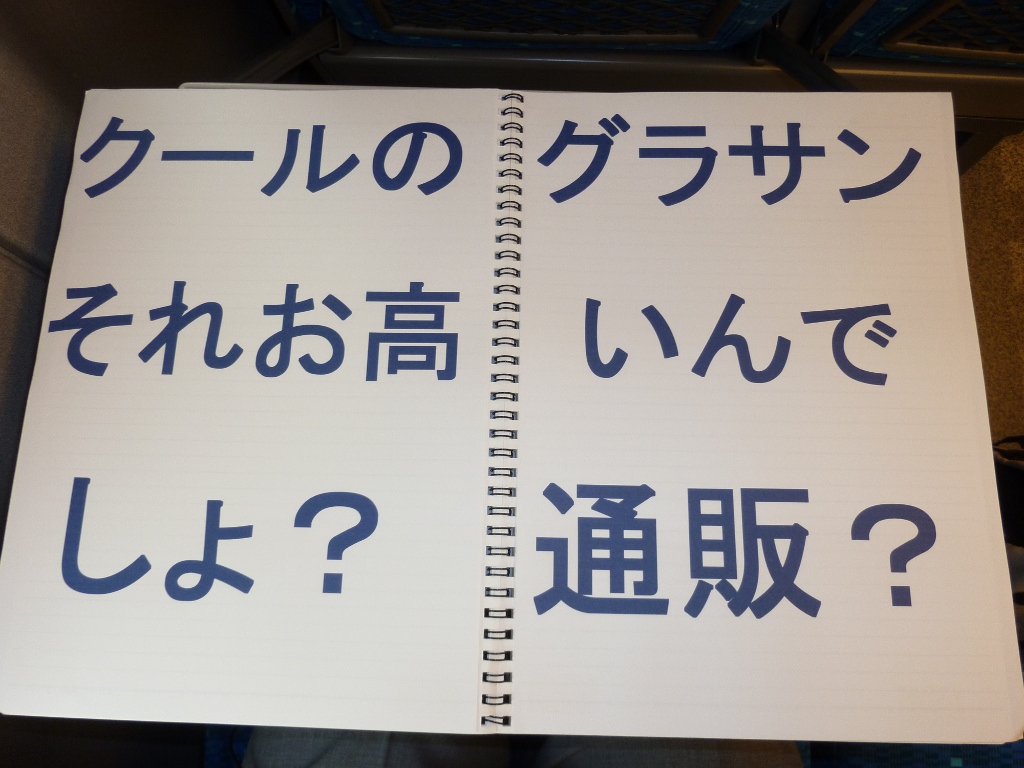 クールのグラサン
それお高いんで
しょ？通販？